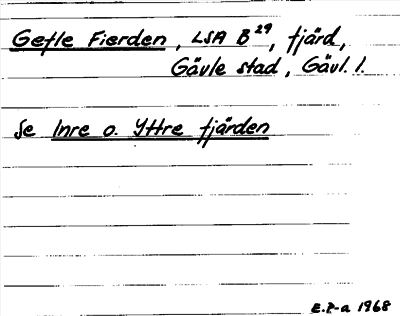 Gefle Fierden, LSA B29, fjärd,
Gävle stad, Gävl. l.
Se Inre o. Yttre fjärden
E.P-a 1968